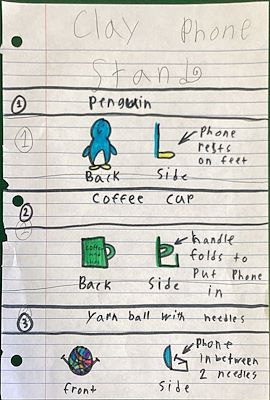 Clay Phone
Stand
1 Penguin
1
Phone
rests
on feet
Back Side
Coffee Cup
2
2
coffee
handle
folds to
Put Phone
in
Back Side
3 Yarn ball with needles
Phone
in between
2 needles
front Side